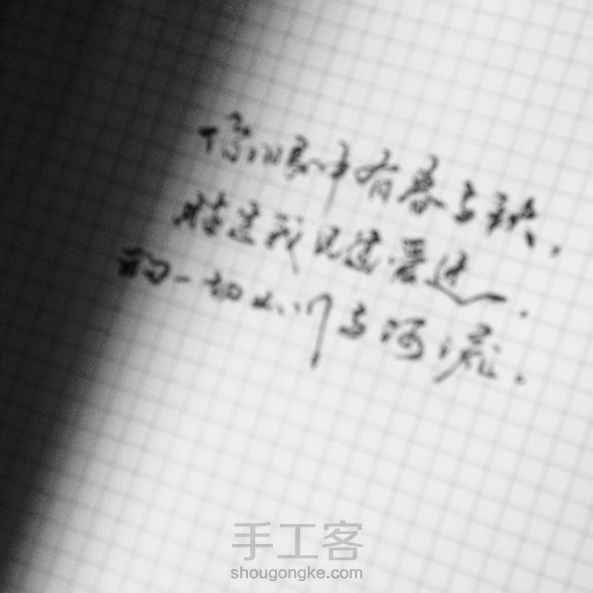 你的眼中有春与秋，
胜过我见过爱过
的一切山川与河流.
手工客
shougongke.com